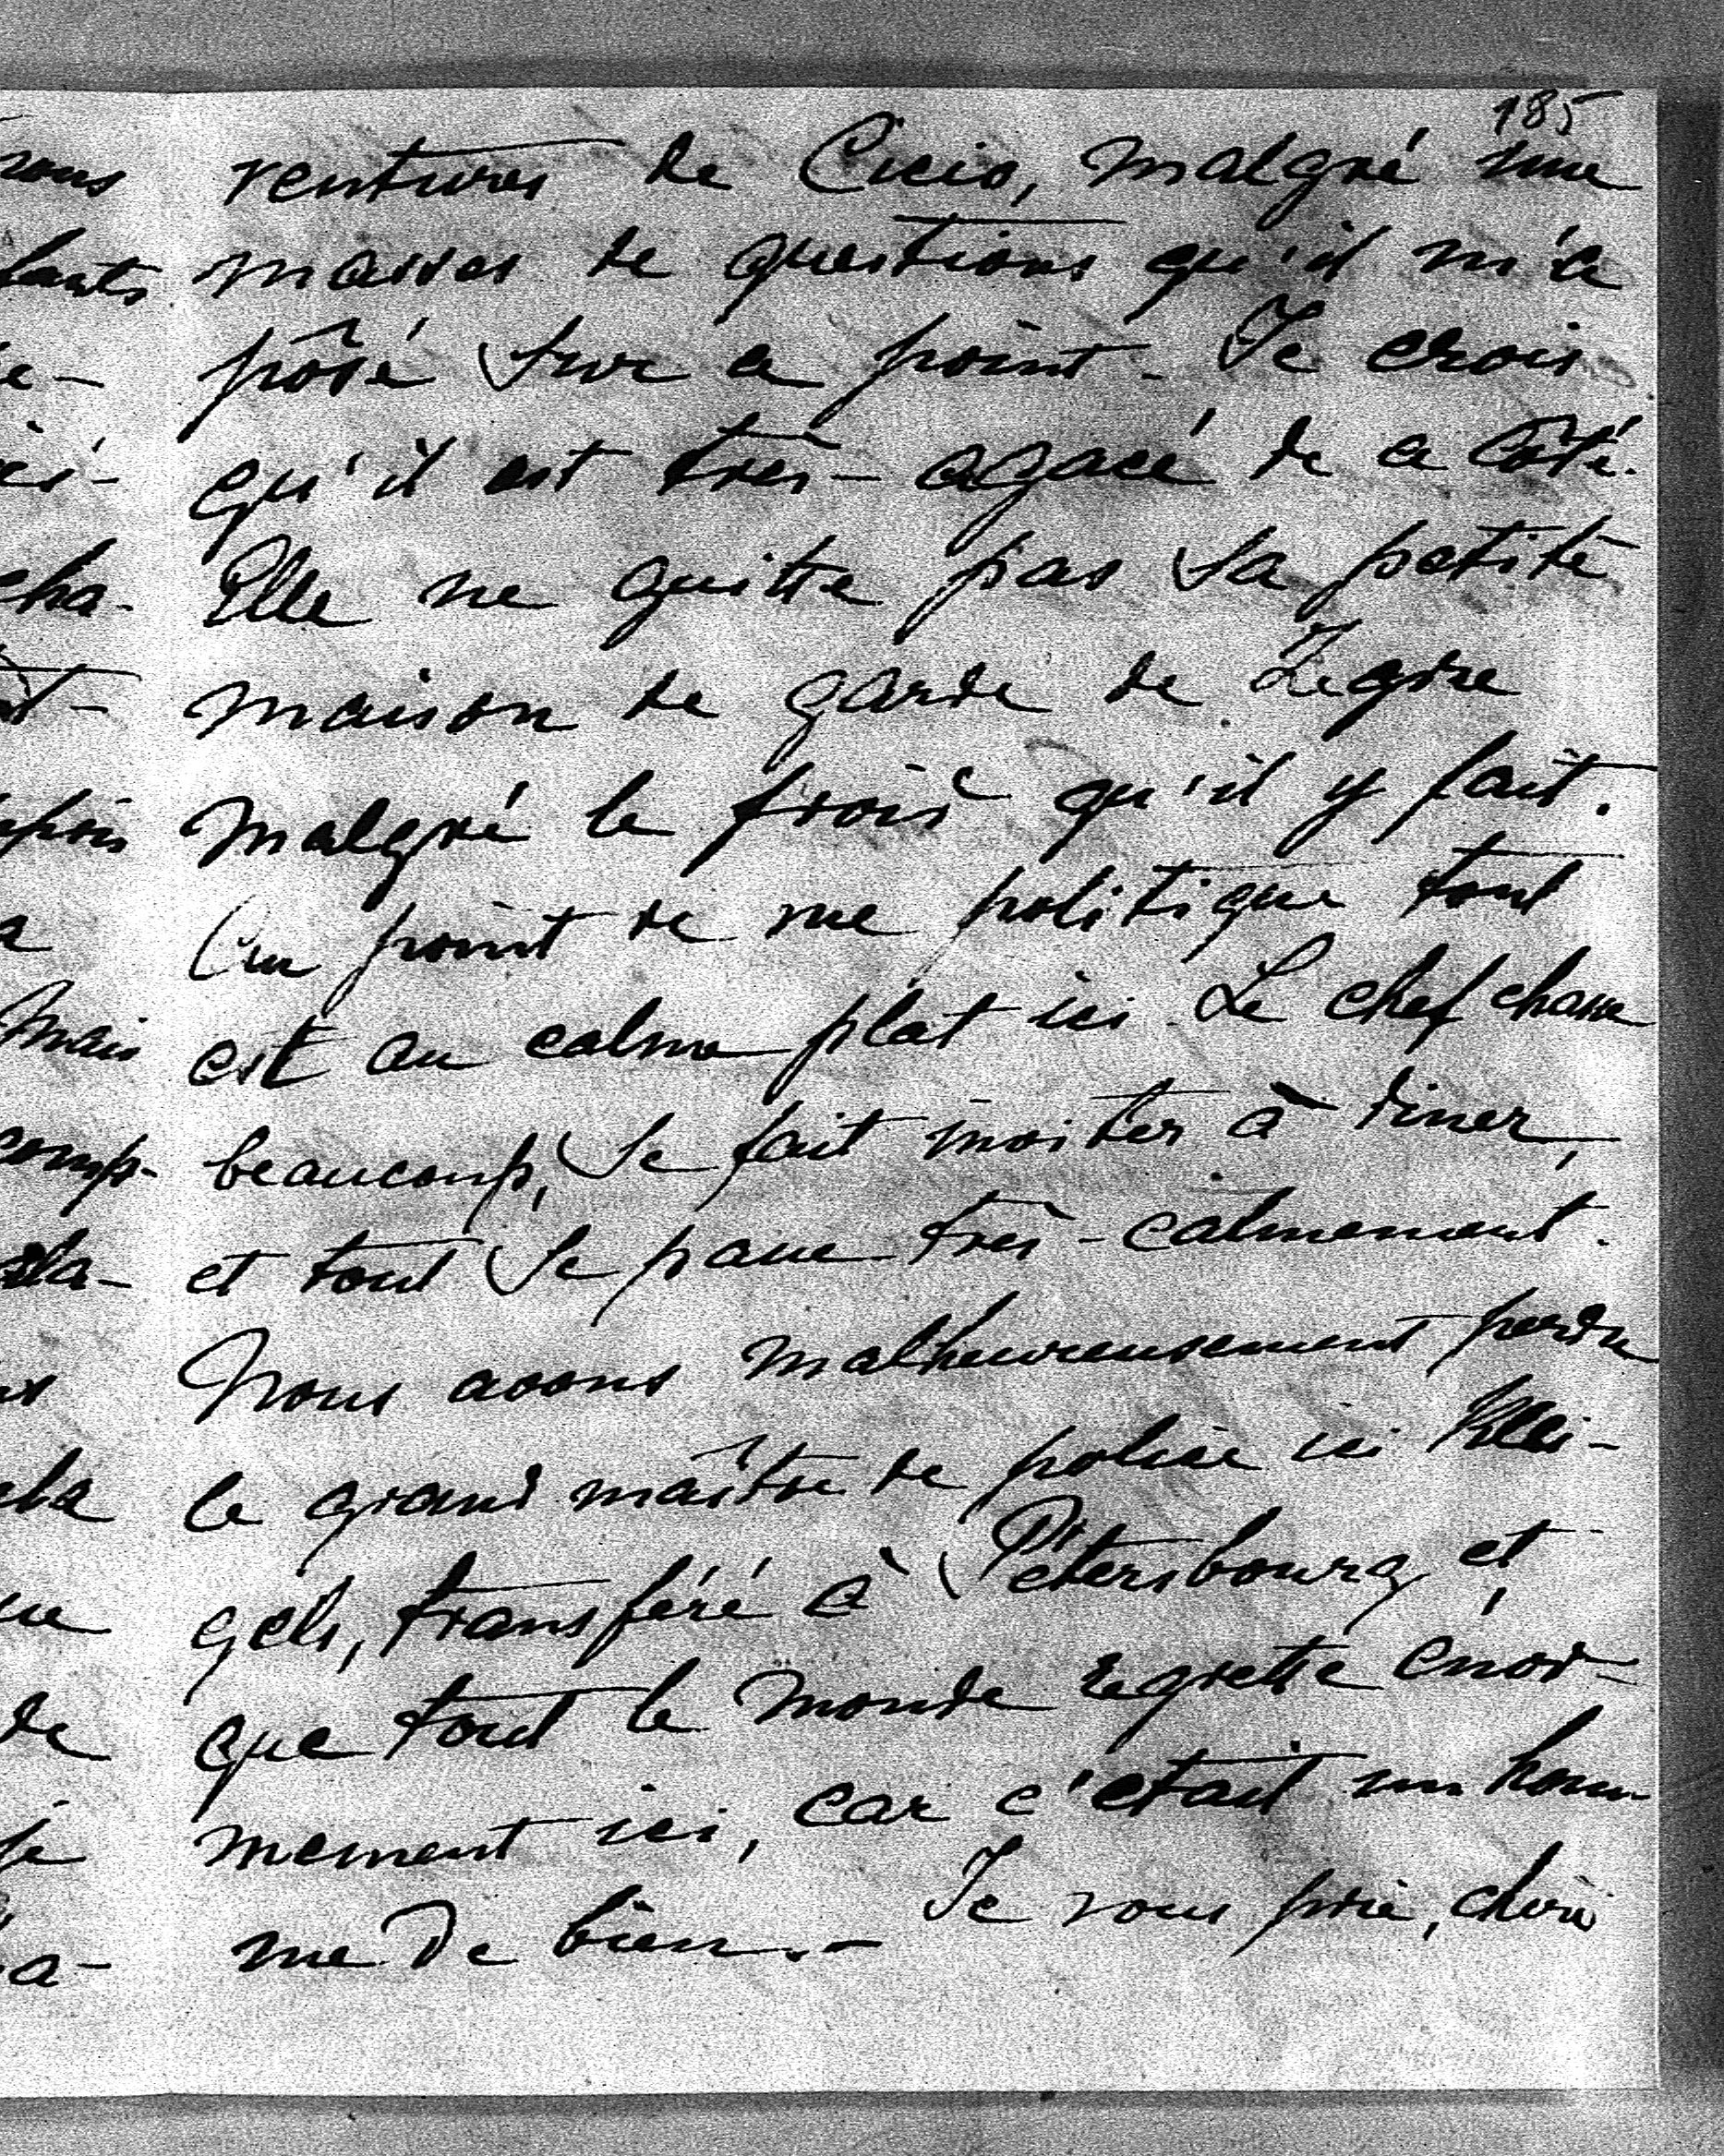 185
ventures de Cicio, malgré une
masses de questions qu'il m'a
posé sur ce point. Je crois
qu'il est très-agacé de ce côté.
Elle ne quitte pas sa petite
maison de garde de Zegrze
malgré le froid qu'il y fait.
Au point de vue politique tout
est au calme plat ici. Le chef chasse
beaucoup, se fait inviter à diner,
et tout se passe très-calmement.
Nous avons malheureusement perdu
le grand maître de police ici Klei-
gels, transféré à Pétersbourg et
que tout le monde regrette énor-
mement ici, car c'était un hom-
me de bien.— Je vous prie, chère
nous
tants
cha-
Mais
comp-
de